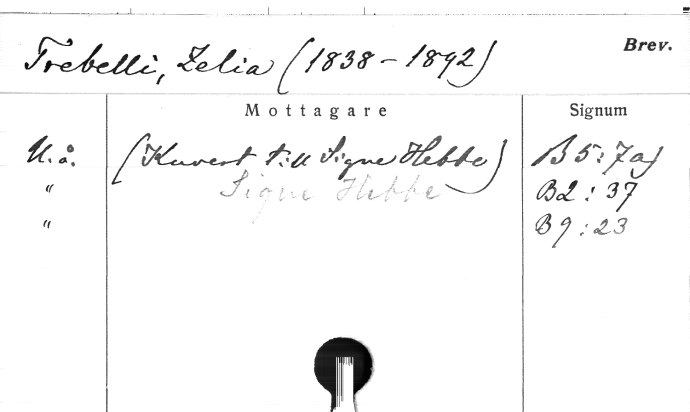 Trebelli, Zelia (1838-1892) Brev.
Mottagare Signum
U.å. (Kuvert till Signe Hebbe) B5:7a)
" Signe Hebbe B2:37
" B9:23